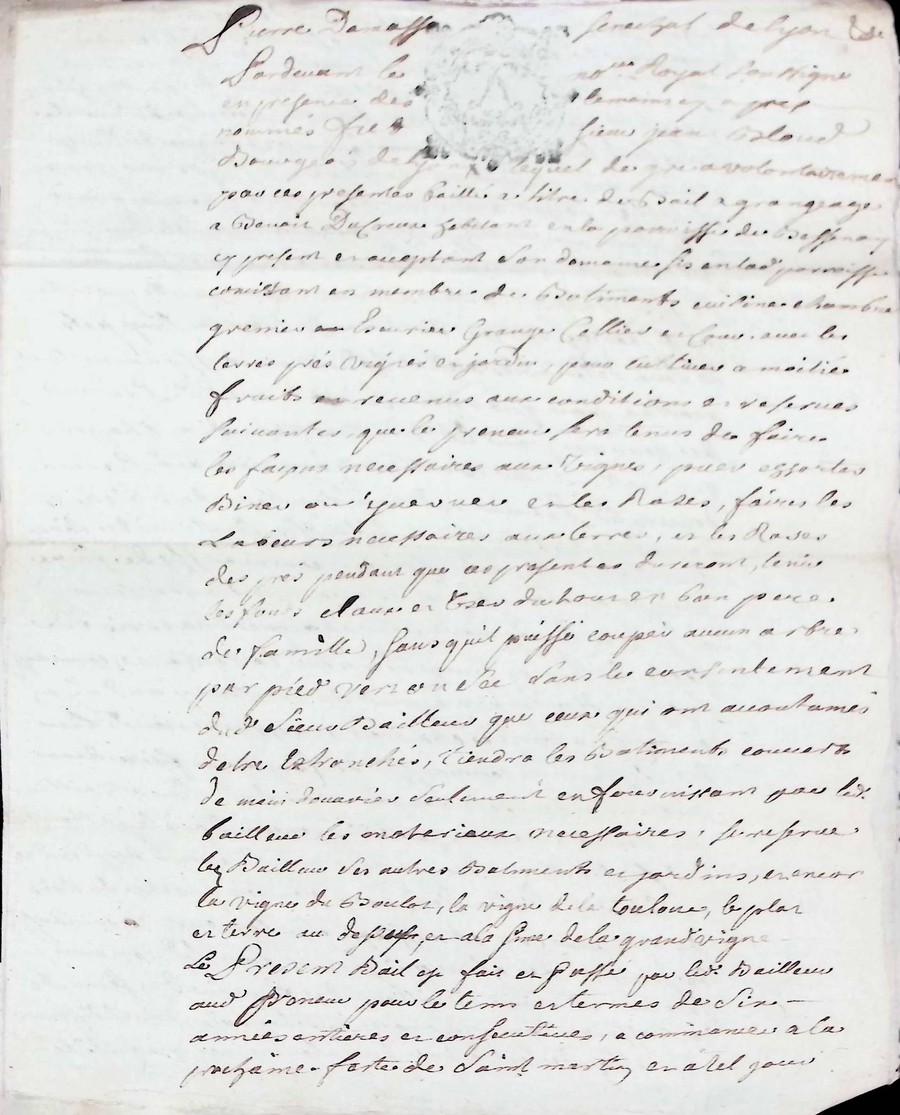 Pierre Damasse senechal de Lyon &c
Pardevant le no.re Royal soussigne
en presence des temoins cy apres
nommés fut sieur jean
Bourgeois de Lyon lequel de gre a volontairement
par ces presentes baillé a titre de Bail a grangeage
a Benoit Ducreux habitant en la paroisse de Bessenay
cy present et acceptant son domaine sis en lad. parroisse
concistant en membre de Batiments cuisine chambre
grenier Escurier Grange Cellier et Cour avec les
terres prés vignes et jardin, pour cultiver a moitié
fruits et revenus aux conditions et reserves
suivantes, que le preneur sera tenus de faire
les façons necessaires aux vignes,
Biner et les Rases, faire les
Labeurs necessaires aux terres, et les Rases
des prés pendant que ces presentes dureront, tenir
les fonds Claux et User du tout en bon pere
de famille, sans quil puisse couper aucun arbre
par pied vert ou sec sans le consentement
dud. Sieur Bailleur que ceux qui ont accoutumés
detre Extronchés, tiendra les Batiments couverts
de main douvries seulement en fournissant par led.
bailleur les materiaux necessaires, se reserve
le Bailleur ses autres Batiments et jardins, et encor
la vigne du la vigne de la toulouse, le plat
et terre au dessus et a la sime de la grand vigne
Le Present Bail est fait et Passé par led. Bailleur
aud. Preneur pour le tems et termes de Six
années entieres et consecutives, a commencer a la
prochaine feste de Saint martin et a tel jour